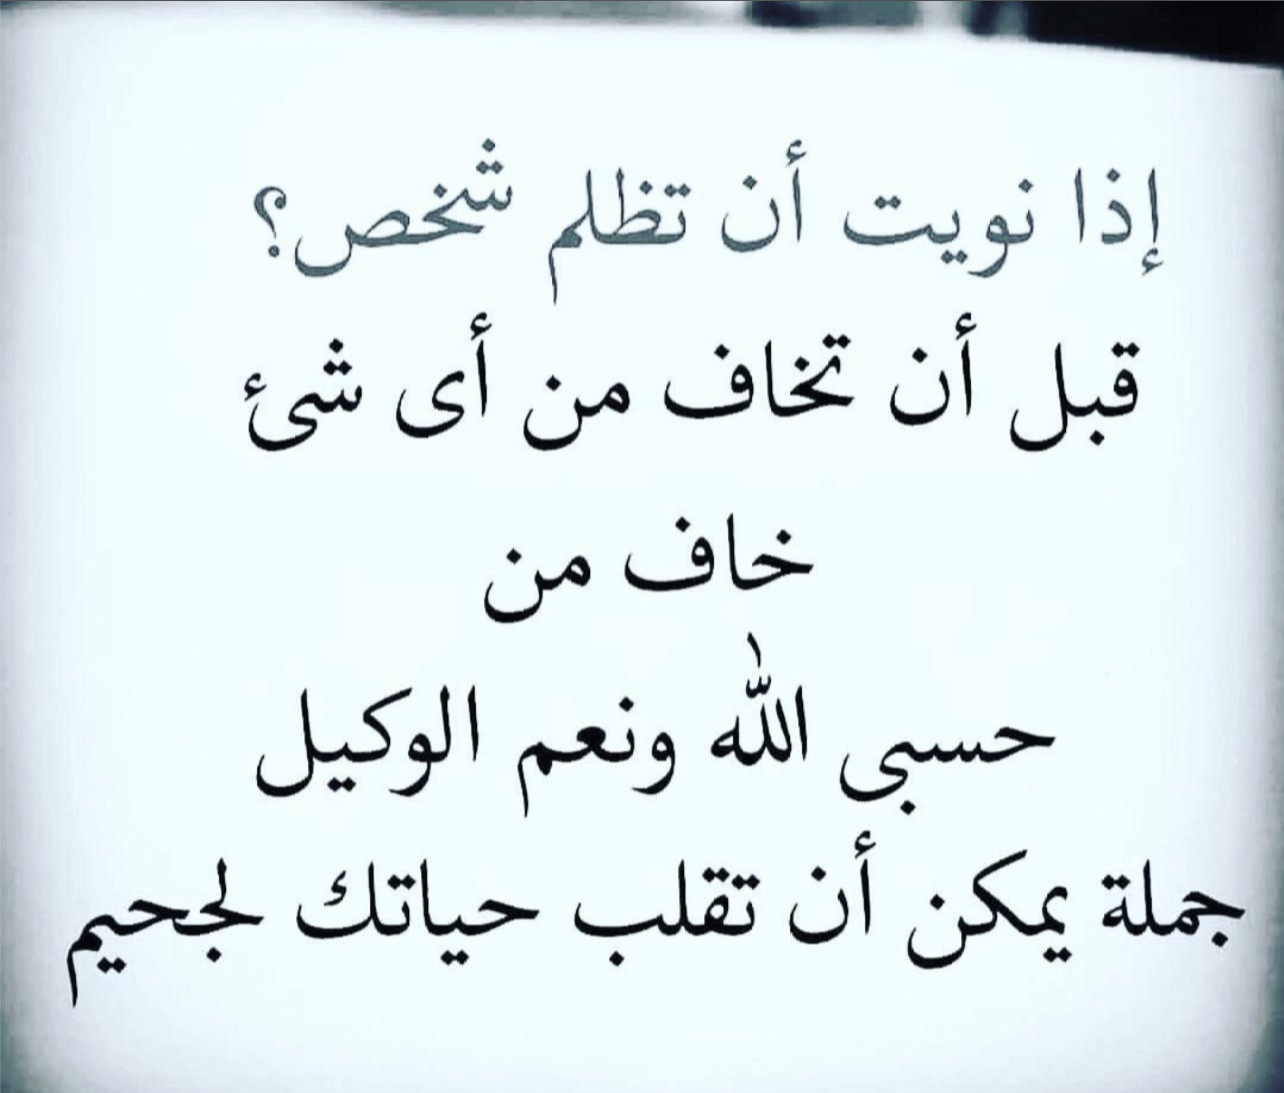 إذا نويت أن تظلم شخص؟
قبل أن تخاف من أى شئ
خاف من
حسبى الله ونعم الوكيل
جملة يمكن أن تقلب حياتك لجحيم